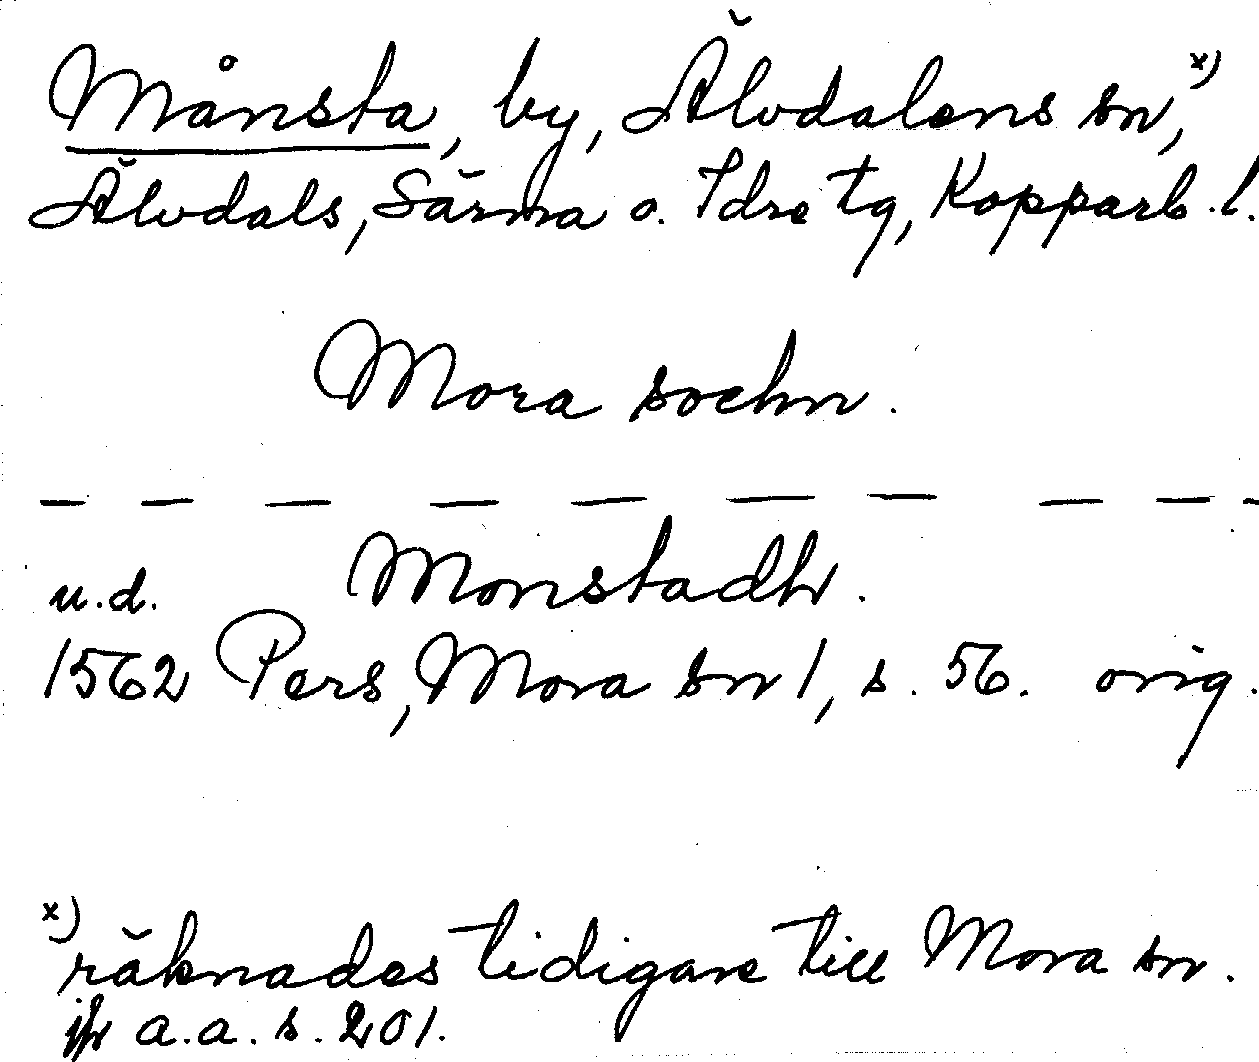 Månsta, by, Älvdalens sn, x)
Älvdals, Särna o. Idre tg, Kopparb.l.
Mora sochn.
— — — — — — — — — —
u.d. Monstadh.
1562 Pers, Mora sn 1, s. 56. orig.
x) räknades tidigare till Mora sn.
jfr a.a. s. 201.